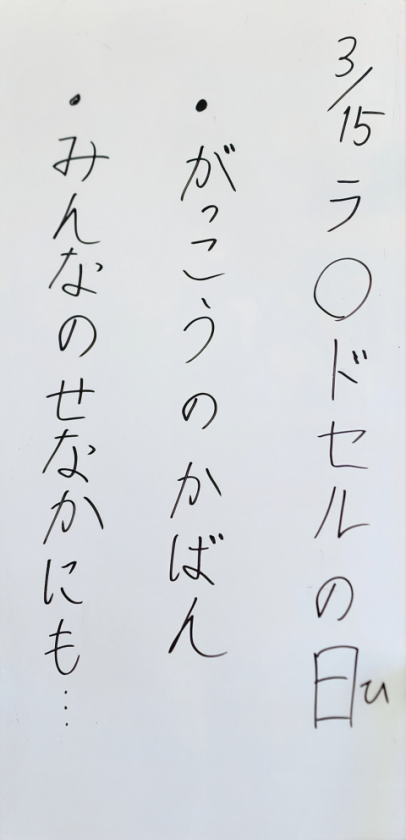 3/15 ラ〇ドセルの日ひ
・がっこうのかばん
・みんなのせなかにも…